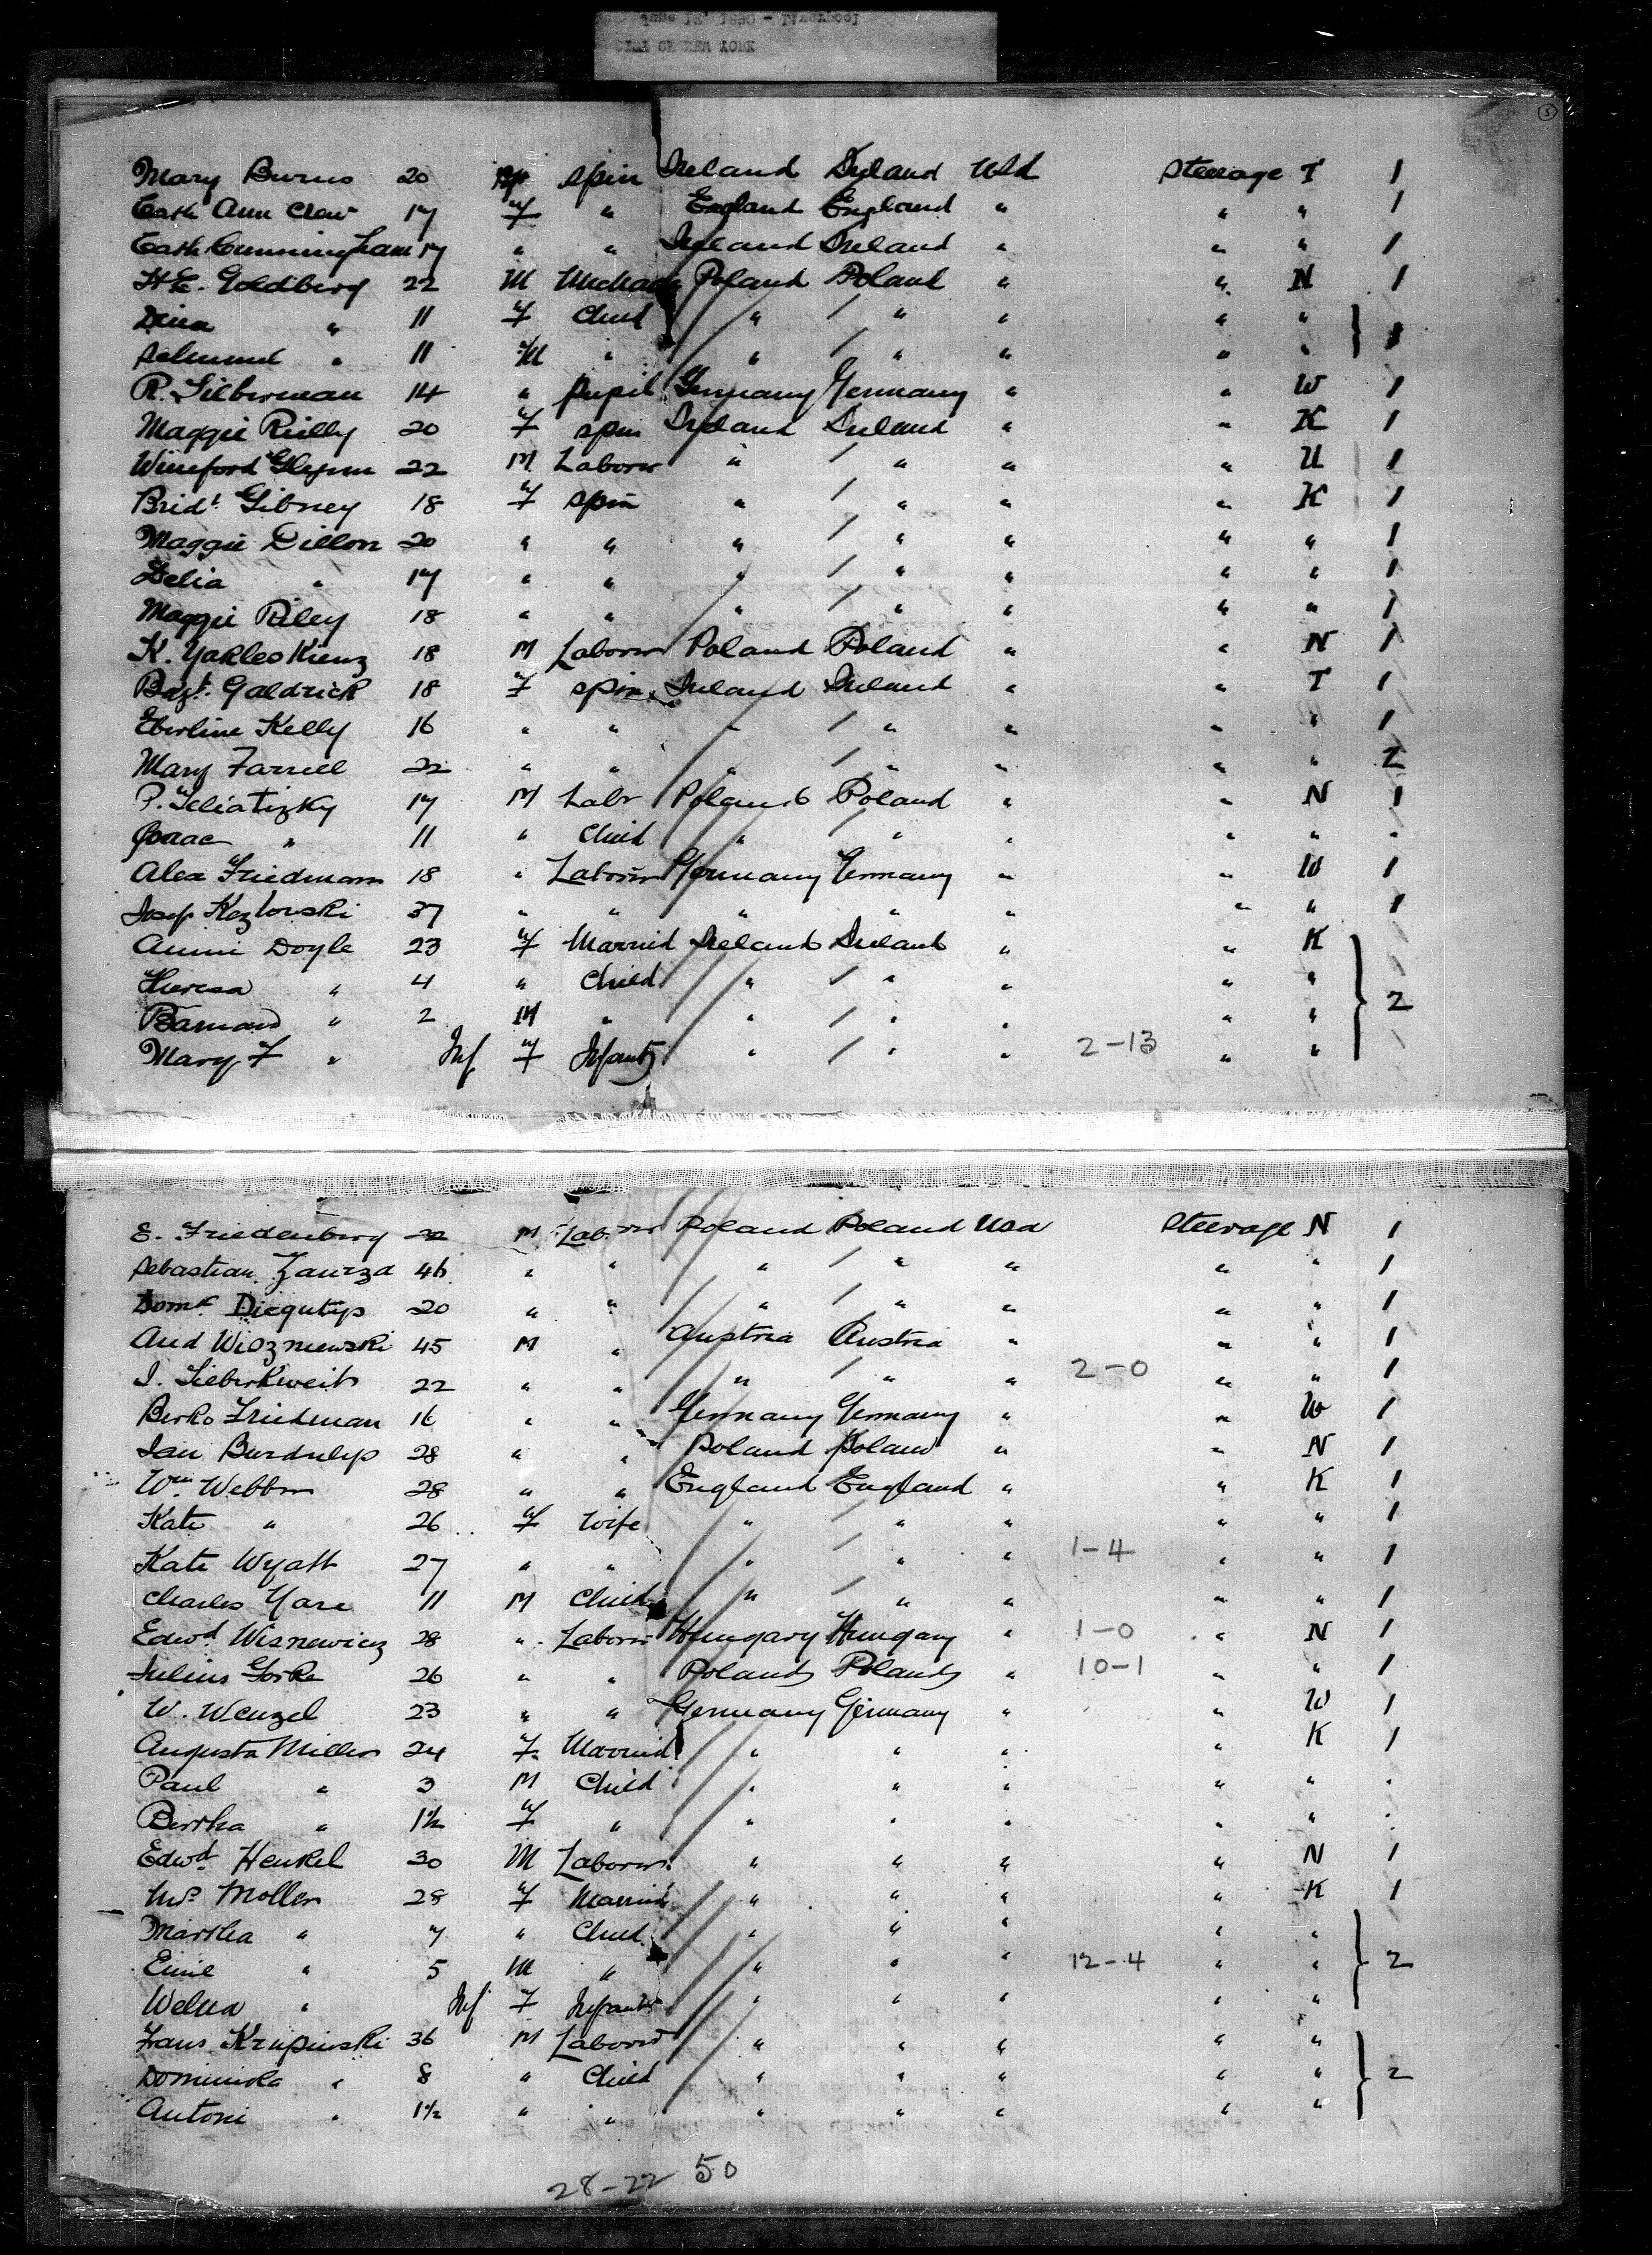 CITY OF NEW YORK
June 12, 1890 - Liverpool
5
Mary Burns 20 spin Ireland Ireland Usa Steerage T 1
Cath Ann Claw 17 F " England England " " " 1
Cath Cunningham 17 " " Ireland Ireland " " " 1
H.E. Goldberg 22 M Mechanic Poland Poland " " N 1
Dina " 11 F Child " / " " " "
Selmund " 11 M " " / " " " " 1
R. Silberman 14 " pupil Germany Germany " " W 1
Maggie Rielly 20 F spin Ireland Ireland " " K 1
Wineford Glynn 22 M Laborer " / " " " U 1
Bridt Gibney 18 F spin " / " " " K 1
Maggie Dillon 20 " " " / " " " " 1
Delia " 17 " " " / " " " " 1
Maggie Riley 18 " " " / " " " " 1
K. YakleoKienz 18 M Laborer Poland Poland " " N 1
Bagt. Galdrick 18 F spin Ireland Ireland " " T 1
Eberline Kelly 16 " " " / " " " " 1
Mary Farrell 22 " " " / " " " " 2
P. Teliatizky 17 M Labr Poland Poland " " N 1
Isaac " 11 " Child " / " " " " "
Alex Friedmann 18 " Laborer Germany Germany " " W 1
Josef Kozlowski 37 " " " " " " " 1
Annie Doyle 23 F Married Ireland Ireland " " K
Theresa " 4 " Child " / " " " " 2
Barnard " 2 M " " / " " " "
Mary F " Inf F Infant " / " " 2-13 " "
E. Friedenberg 32 M Laborer Poland Poland Usa Steerage N 1
Sebastian Zaurza 46 " " " / " " " " 1
Domk Diegutys 20 " " " / " " " " 1
And Wiozniewski 45 M " Austria Austria " " " 1
I. Lieberkweit 22 " " " / " " 2-0 " " 1
Berko Friedman 16 " " Germany Germany " " W 1
Jan Burdulys 28 " " Poland Poland " " N 1
Wm. Webber 28 " " England England " " K 1
Kate " 26 F Wife " / " " " " 1
Kate Wyatt 27 " " " / " " 1-4 " " 1
Charles Yare 11 M Child " / " " " " 1
Edwd. Wisnewicz 28 " Laborer Hungary Hungary " 1-0 " N 1
Julius Gorke 26 " " Poland Poland " 10-1 " " 1
W. Wenzel 23 " " Germany Germany " " W 1
Augusta Miller 24 F Married " " " " K 1
Paul " 3 M Child " " " " " "
Bertha " 1½ F " " " " " " "
Edwd. Henkel 30 M Laborer " " " " N 1
Mrs. Moller 28 F Married " " " " K 1
Martha " 7 " Child " " " " "
Emil " 5 M " " " " 12-4 " " 2
Welna " Inf F Infant " " " " "
Hans Krupinski 36 M Laborer " " " " "
Dominika " 8 " Child " " " " " 2
Antoni " 1½ " " " " " " "
28-22 50